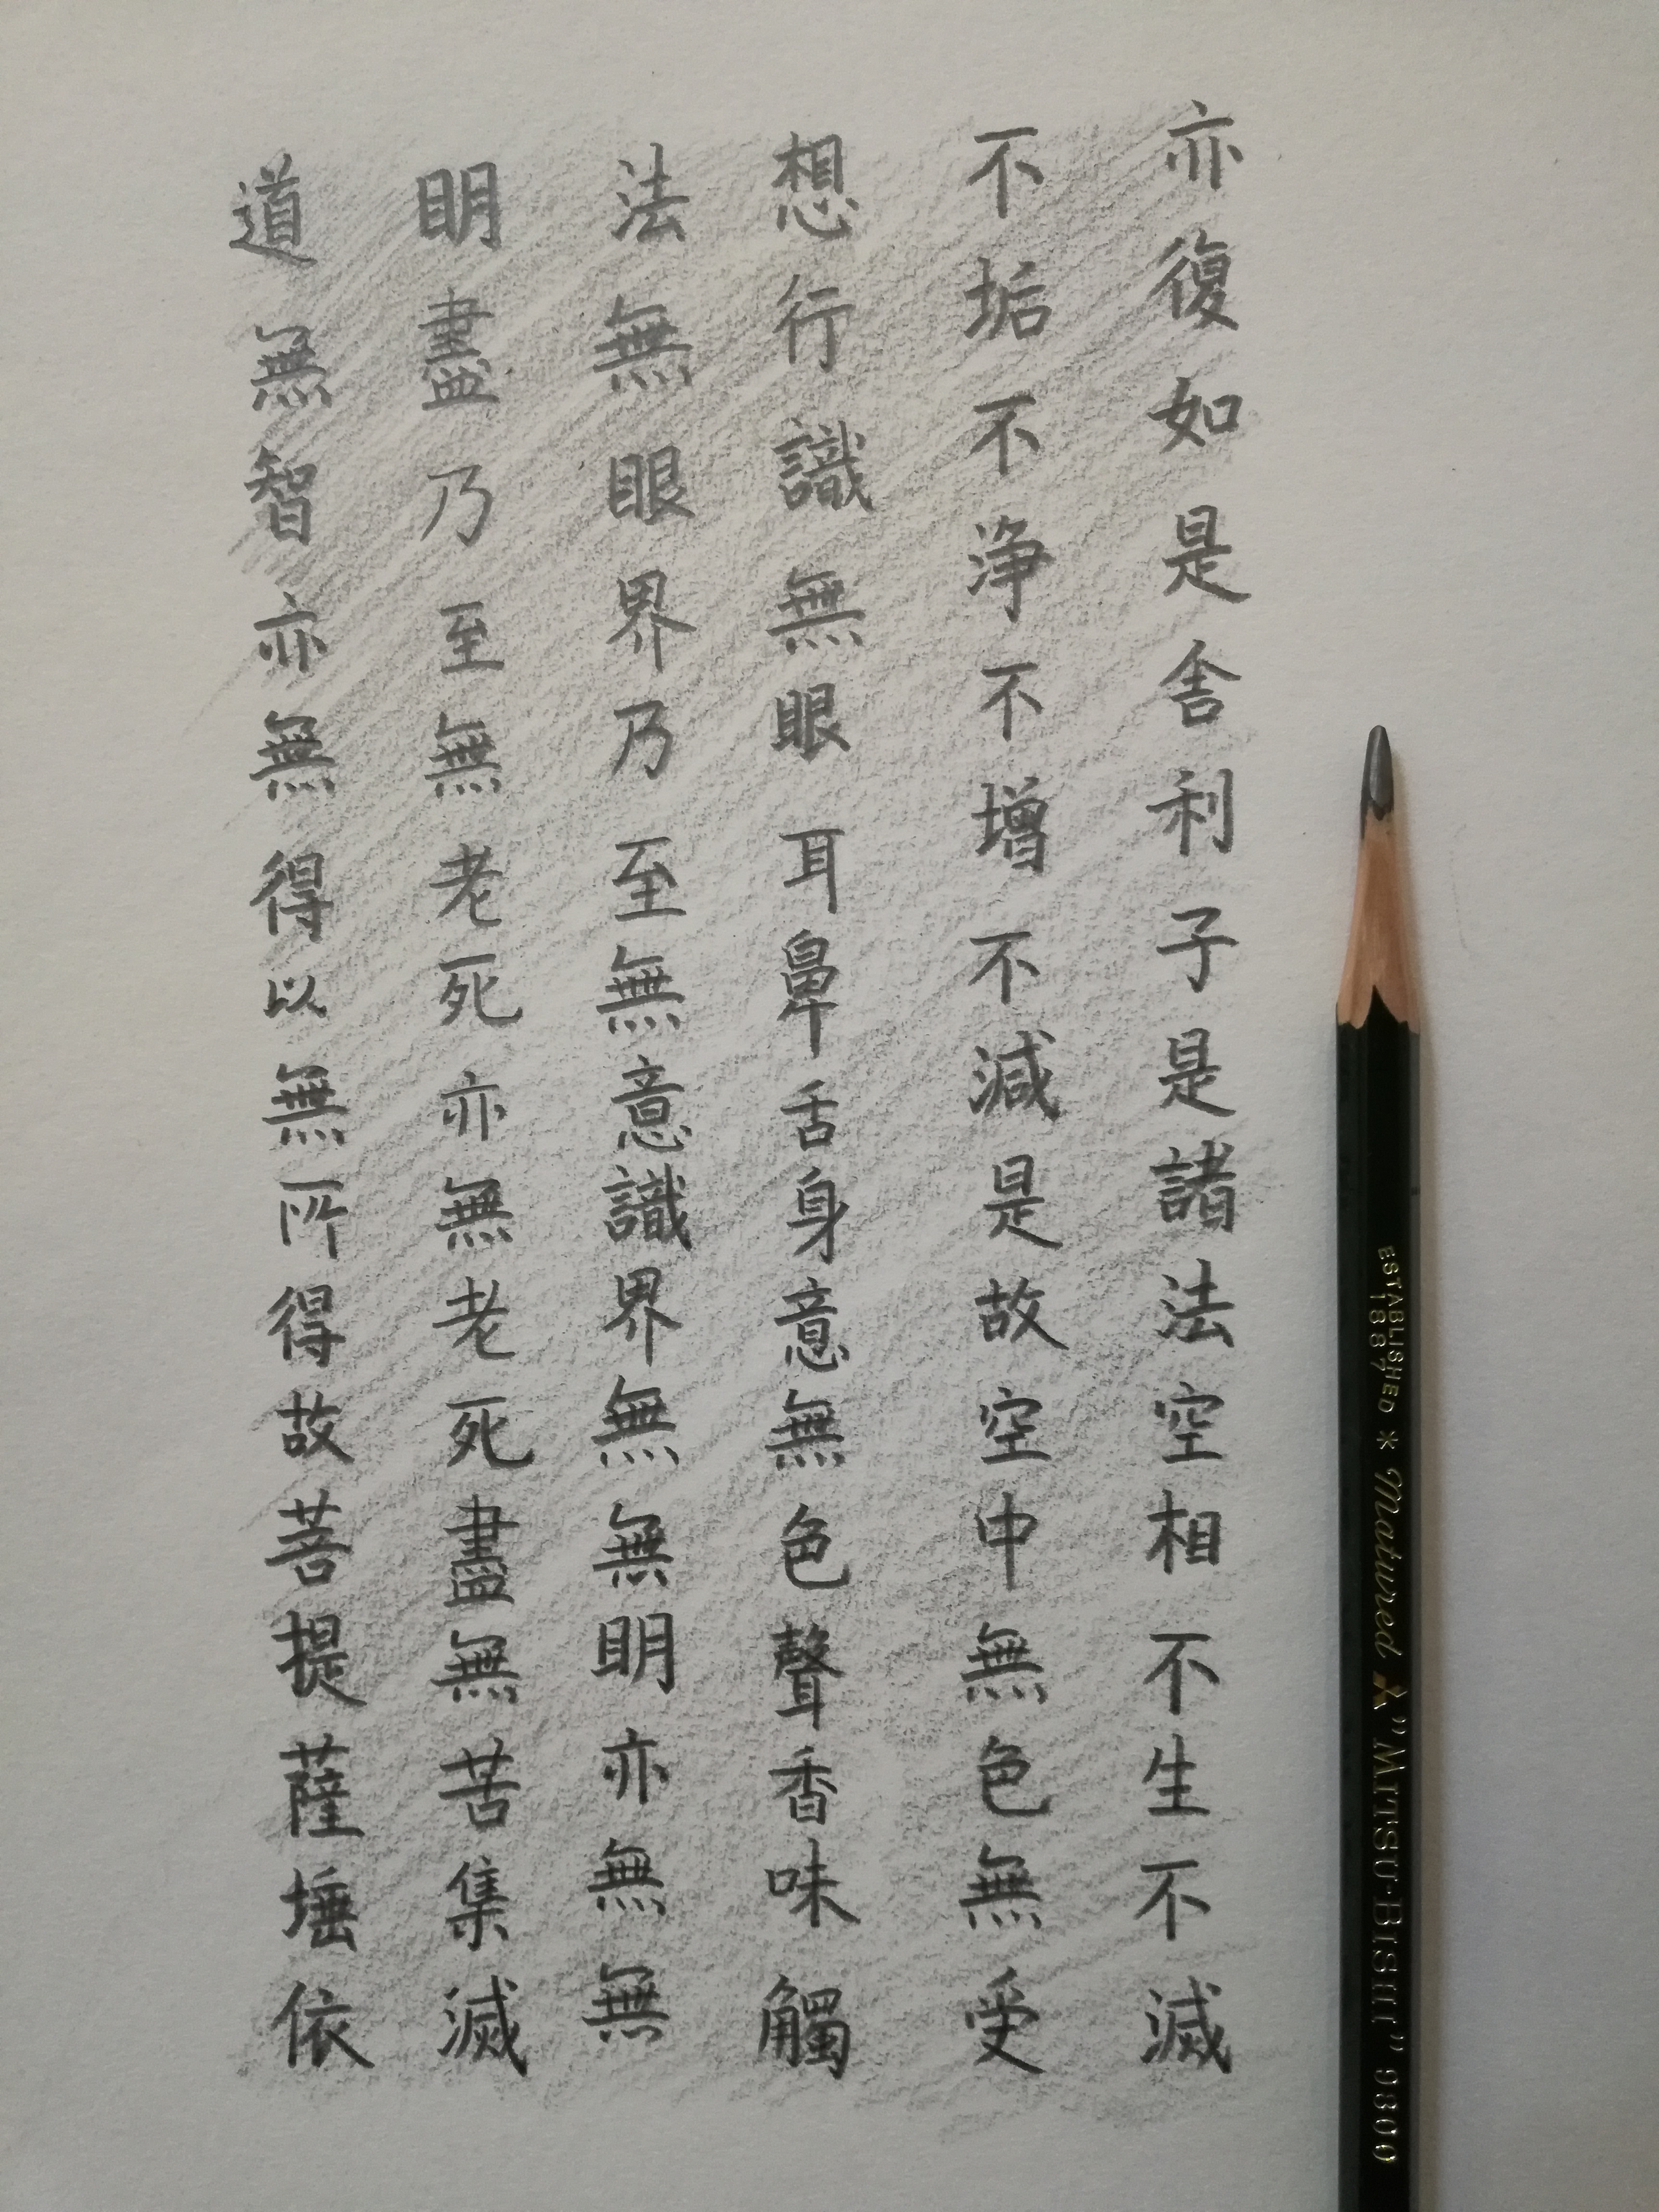 亦復如是舍利子是諸法空相不生不滅
不垢不淨不增不減是故空中無色無受
想行識無眼耳鼻舌身意無色聲香味觸
法無眼界乃至無意識界無無明亦無無
明盡乃至無老死亦無老死盡無苦集滅
道無智亦無得以無所得故菩提薩埵依
ESTABLISHED 1887 * Matured "MITSU-BISHI" 9800